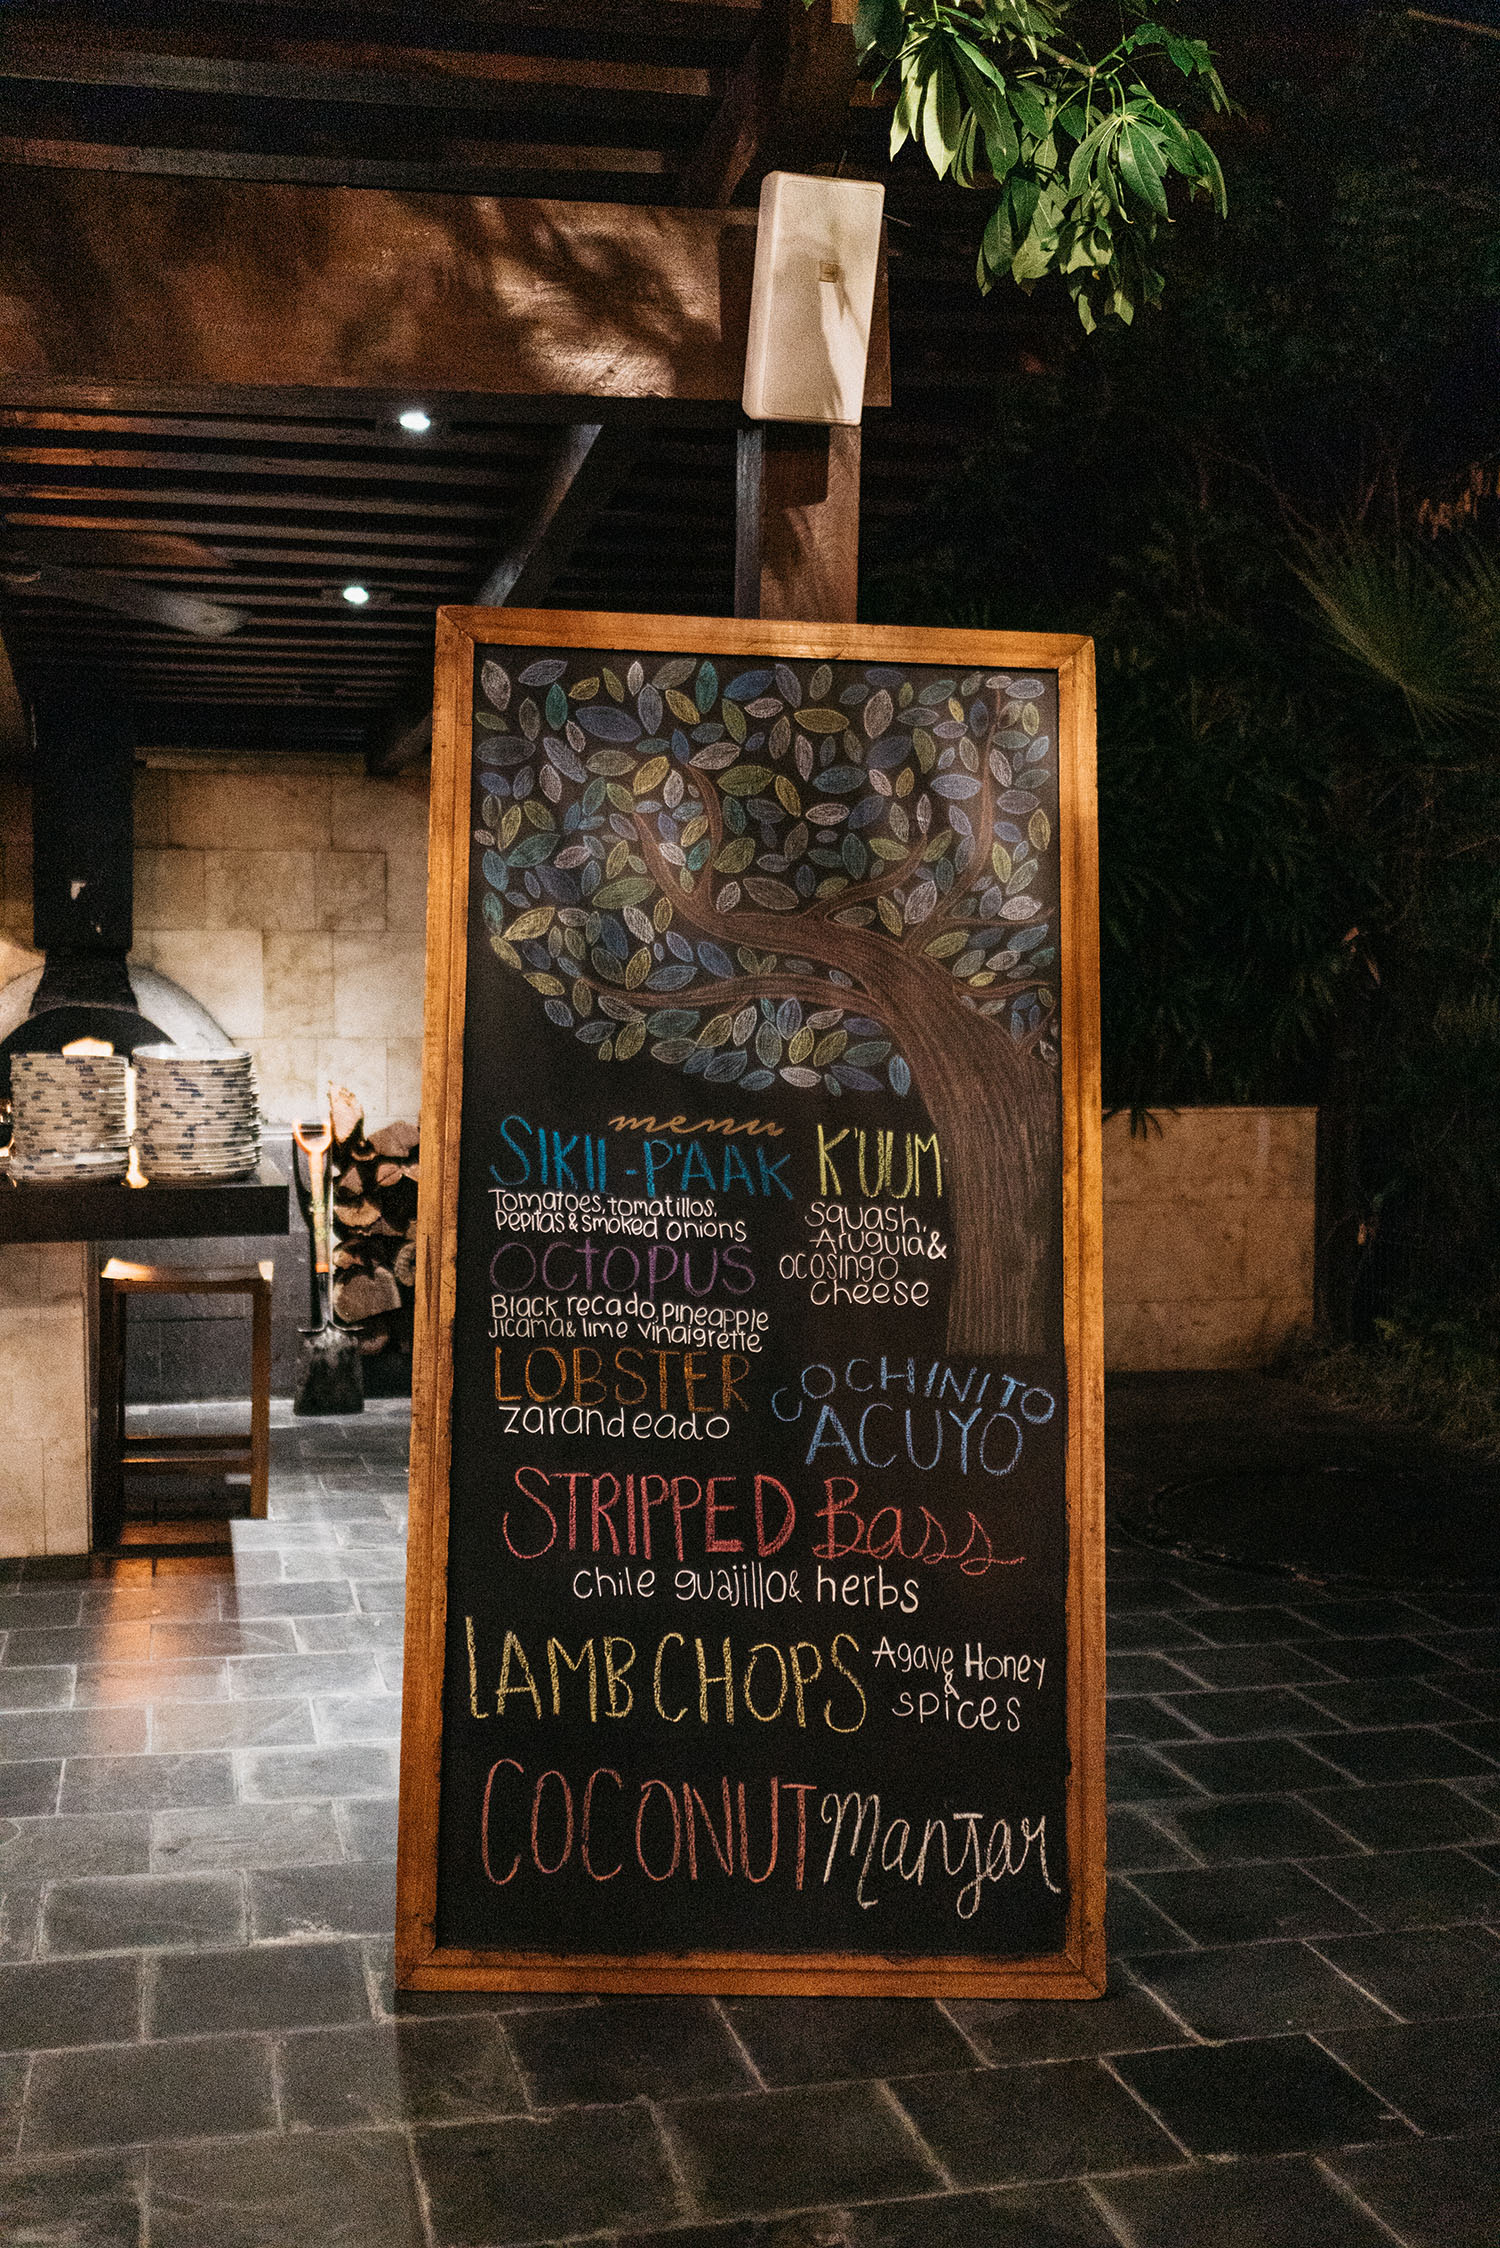 menu
SIKIL-P'AAK
Tomatoes, tomatillos,
Pepitas & smoked onions
OCTOPUS
Black recado, pineapple
Jicama & lime vinaigrette
LOBSTER
zarandeado
K'UUM
Squash,
Arugula &
OCOSINGO
Cheese
COCHINITO
ACUYO
STRIPPED Bass
chile guajillo & herbs
LAMB CHOPS
Agave Honey
&
spices
COCONUT Manjar